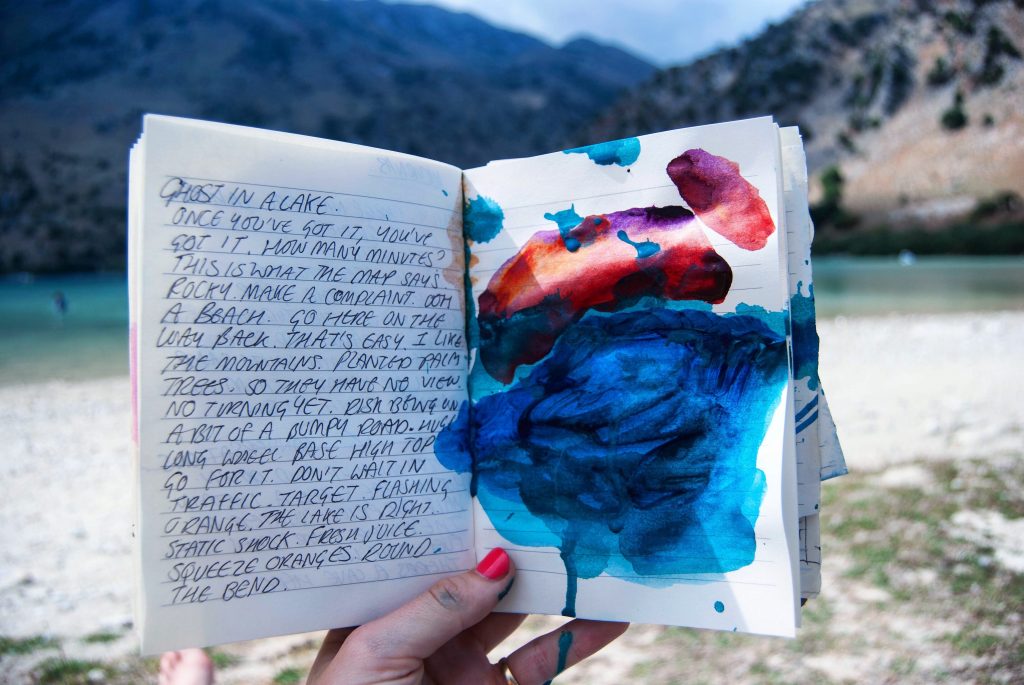 GHOST IN A LAKE.
ONCE YOU'VE GOT IT, YOU'VE
GOT IT. HOW MANY MINUTES?
THIS IS WHAT THE MAP SAYS
ROCKY. MAKE A COMPLAINT. OOH
A BEACH. GO HERE ON THE
WAY BACK. THAT'S EASY. I LIKE
THE MOUNTAINS. PLANTED PALM
TREES. SO THEY HAVE NO VIEW.
NO TURNING YET. RISK BEING ON
A BIT OF A BUMPY ROAD. HUGE
LONG WHEEL BASE HIGH TOP
GO FOR IT. DON'T WAIT IN
TRAFFIC. TARGET. FLASHING
ORANGE. THE LAKE IS RIGHT.
STATIC SHOCK. FRESH JUICE.
SQUEEZE ORANGES. ROUND
THE BEND.